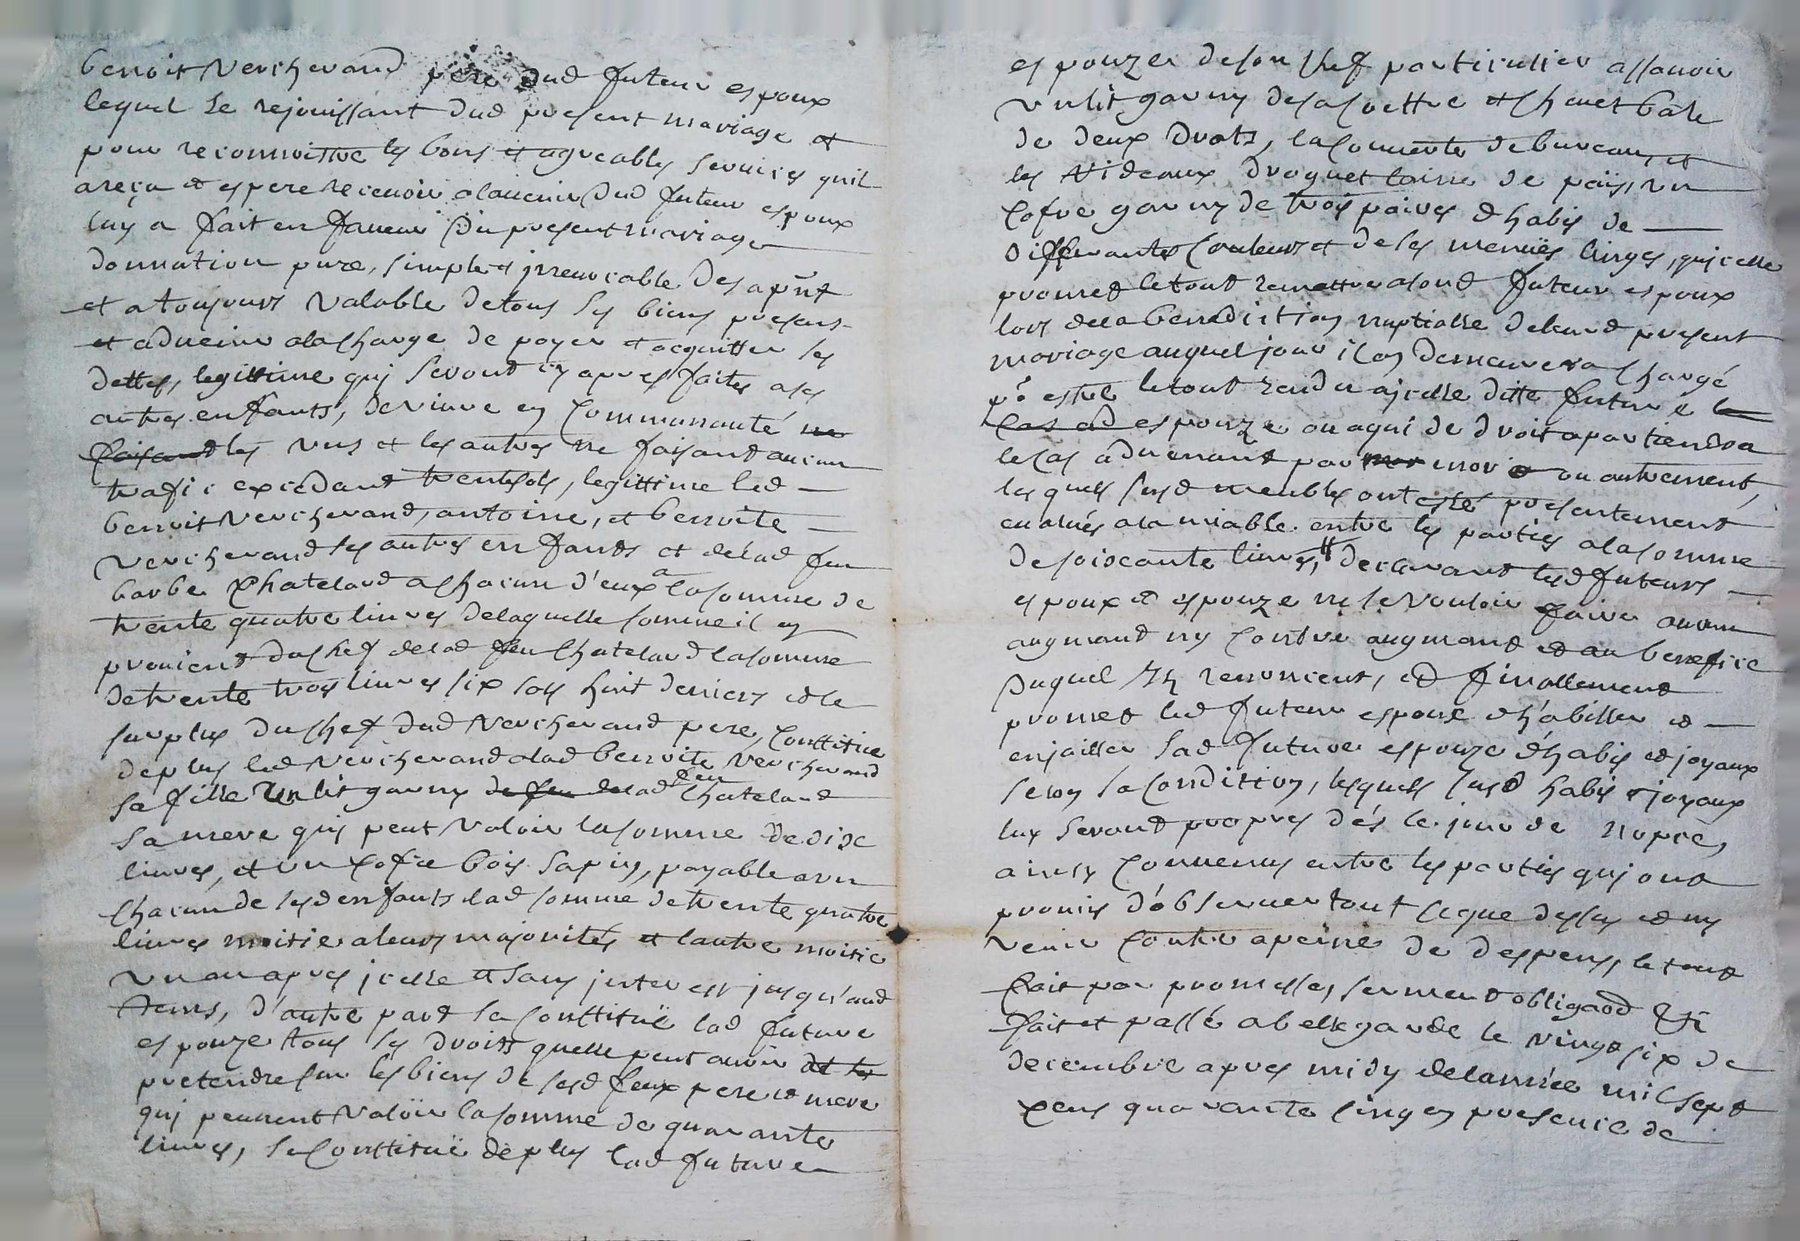 benoit Vercherand pere dud futeur espoux
lequel se rejouissant dud present mariage et
pour reconnoistre les bons et agreables services quil
a reçu et espere recevoir a lauenir dud futeur espoux
luy a fait en faueur du present mariage
donnation pure, simple et jrreuocable des apñt
et a tousjours valable de tous ses biens presens
et aduenir a la charge de payer et acquitter ses
dettes, legittime quj seront cy apres faites a ses
autres enfants, de viure en communauté ne
faisant les uns et les autres ne faisant aucun
trafic excedant trente sols, legittime led
benoit Vercherand, antoine, et benoite
Vercherand ses autres enfants et de lad feu
barbe Chatelard a chacun d'eux a la somme de
trente quatre liures de laquelle somme il en
prouient du chef de lad feu Chatelard la somme
de trente trois liures six sols huit deniers et le
surplus du chef dud Vercherand pere, Constitue
de plus led Vercherand a lad benoite Vercherand
sa fille un lit garny de feu de lad feu Chatelard
sa mere quj peut valoir la somme de dix
liures, et un cofre bois sapin, payable a un
chacun de sesd enfants lad somme de trente quatre
liures moitie a leurs majorités et lautre moitie
un an apres jcelle et sans jnterest jusqu'aud
tems, d'autre part sa Constitué lad future
espouze tous ses droits quelle peut auoir et les
pretendre sur les biens de sesd feux pere et mere
quj peuuent valoir la somme de quarante
liures, se Constitue de plus lad future
espouze de son chef particulier assauoir
un lit garny de sa couettre et cheuet bale
de deux draps, la couuerte de bureau, et
les rideaux droguet laine de païs, un
cofre garny de trois paires d'habis de
differantes couleurs et de ses menües linges, quj celle
promet le tout remettre a sond futeur espoux
lors de la benediction nuptialle de leurd present
mariage auquel jour il en demeurera chargé
pr estre le tout rendu a jcelle ditte future le
cas ad espouze ou a qui de droit apartiendra
le cas aduenant par mor mort ou autrement,
lesquels susd meubles ont esté presentement
eualués a lamiable entre les parties a la somme
de soixante liures, declarant lesd futeurs
espoux et espouze ne se vouloir faire aucun
augmant ny contre augmant et au benefice
duquel Ils renoncent, et finallement
promet led futeur espoux d'habiller et
enjailler sad future espouze d'habis et joyaux
selon sa condition, lesquels susd habis et joyaux
luy seront propres dés le jour de nopce,
ainsy conuenus entre les parties quj ont
promis d'obseruer tout ce que dessus et ny
venir contre a peine de despens, le tout
fait par promesses, serment obligaõn &c
fait et passé a bellegarde le vingt six de
decembre apres midy de lannée mil sept
cens quarante cinq en presence de